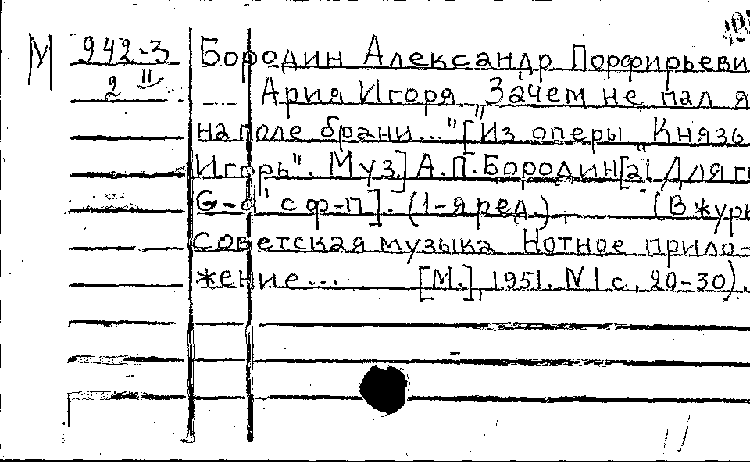 М 942-3 Бородин Александр Порфирьеви
2 II Ария Игоря „Зачем не пал я
на поле брани..." [Из оперы „Князь
Игорь". Муз.] А.П. Бородин[а]. Для г
G-d' с ф-п]. (1-я ред.) (В журн
Советская музыка Нотное прило-
жение... [М.], 1951. N 1 с. 20-30).